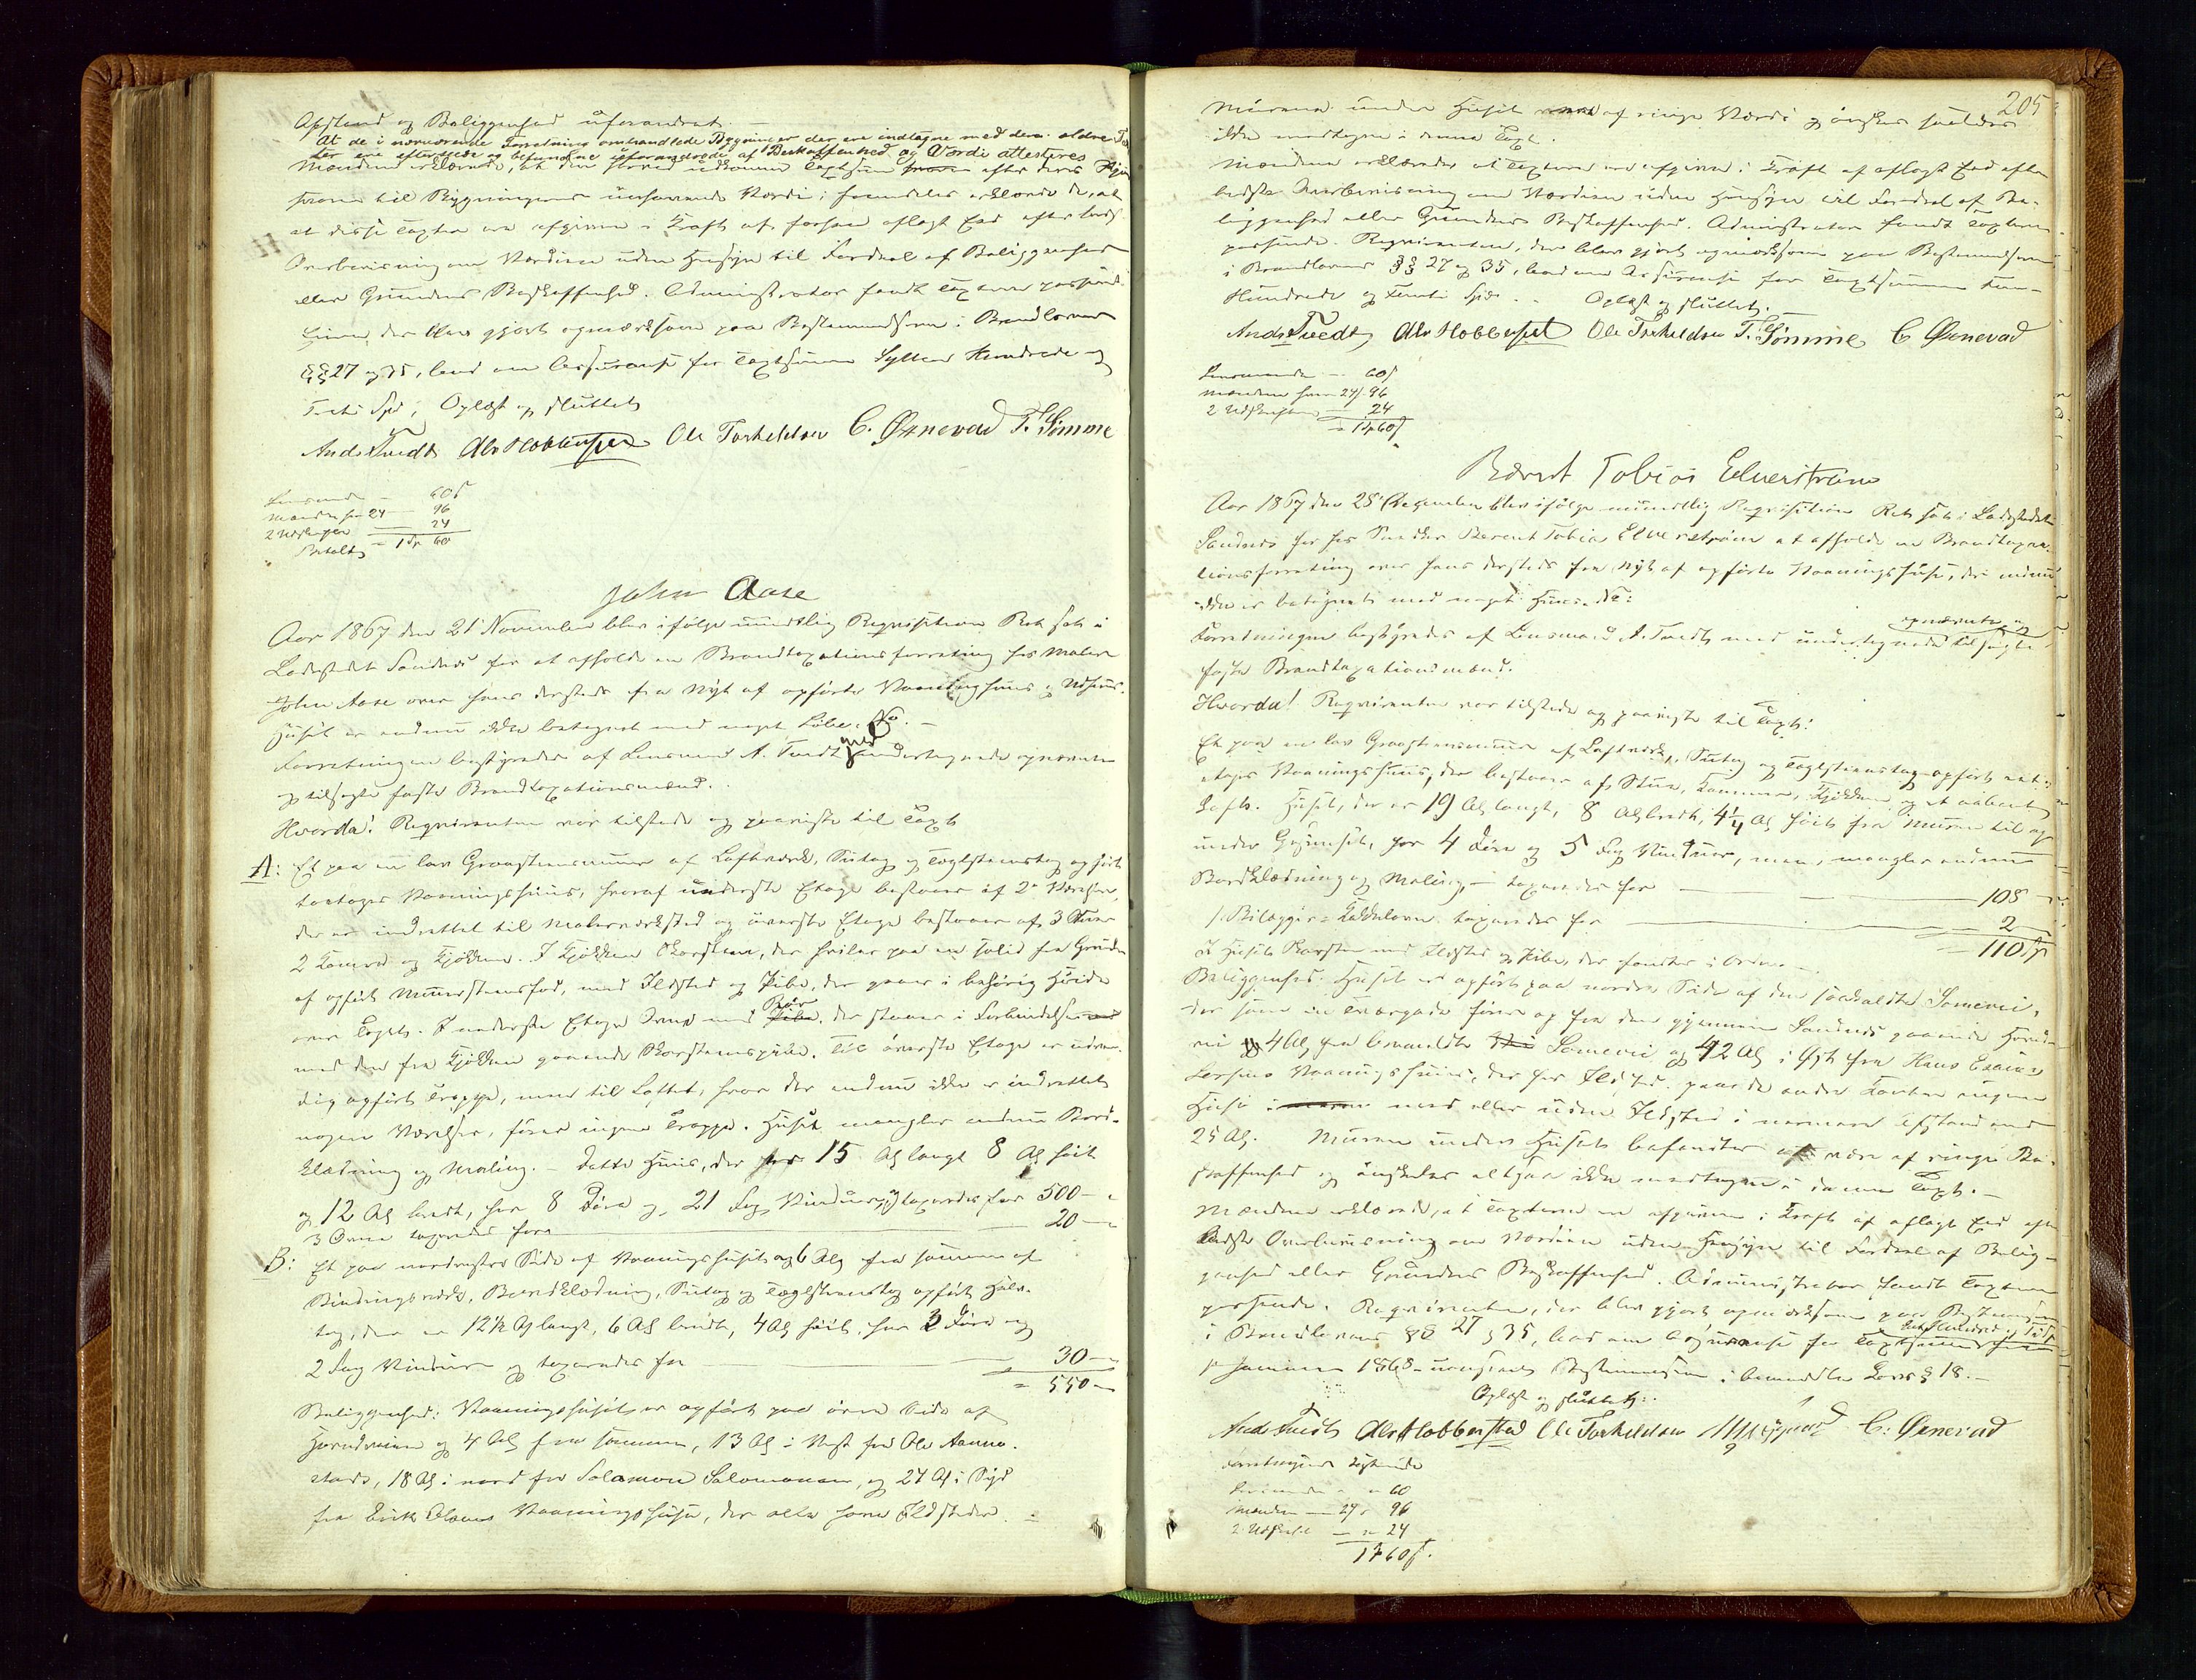 Afstand og Beliggenhed uforandret. —
At de i nærværende Forretning omhandlede Bygninger der ere indtagne med den ældre
der ere efterseede og befundne uforandrede af Beskaffenhed og Værdi attesteres
Mændene erklærede, at den herved udkomne Taxtsum efter deres
svarer til Bygningens nuværende Værdi; fremdeles erklærede de, at
at disse Taxter ere afgivne i Kraft af forhen aflagt Eed efter bedste
Overbeviisning om Værdien uden Hensyn til Fordeel af Beliggenhed
eller Grundens Beskaffenhed. Administrator fandt Taxterne passende.
der blev gjort opmærksom paa Bestemmelserne i Brandlovens
§§ 27 og 35, bad om Assurance for Taxtsummen Sytten Hundrede og
Spd; Oplæst og sluttet
Ands Tvedt Ole Torkeldsen C. Øxnevad T. Sömme
Lensmand — 60 s
Mændene hver 24 — 96
2 Udskrifter — 24
Betalt = 1 Sp 60
John Aase
Aar 1867 den 21 November blev ifølge mundtlig Requisition Ret sat i
Ladestedet Sandnes for at afholde en Brandtaxationsforretning hos Maler
John Aase over hans dersteds fra Nyt af opførte Vaaningshuus og Udhuus.
Huset er endnu ikke betegnet med noget Løbe No. —
Forretningen bestyredes af Lensmand A. Tvedt med undertegnede opnævnte
og tilsagte faste Brandtaxationsmænd.
Hvorda! Requirenten var tilstede og paaviste til Taxt
A: Et paa en lav Graasteensmuur af Laftværk, Sutag og Tagsteenstag opført
toetages Vaaningshuus, hvoraf underste Etage bestaaer af 2 Værelser,
der er indrettet til Malerværksted og øverste Etage bestaaer af 3 Stuer
2 Kamre og Kjøkken. I Kjøkken Skorsteen, der hviler paa en solid fra Grunden
af opført Muursteensfod, med Ildsted og Pibe, der gaaer i behørig Høide
over Taget. I underste Etage Ovn med Rør, der staaer i Forbindelse
med den fra Kjøkken gaaende Skorsteenspibe. Til øverste Etage er
dig opført Trappe, men til Loftet, hvor der endnu ikke er indrettet
nogen Værelser, fører ingen Trappe. Huset mangler endnu Bord-
klædning og Maling. — Dette Huus, der er 15 Al langt 8 Al høit
og 12 Al bredt, har 8 Døre og 21 Fag Vinduer, taxeredes for 500 —
3 Ovne taxeredes for — 20 —
B: Et paa nordvestre Side af Vaaningshuset og 6 Al fra samme af
Bindingsværk, Bordklædning, Sutag og Tagsteenstag opført
tag, der er 12½ Al langt, 6 Al bredt, 4 Al høit, har 3 Døre og
2 Fag Vinduer og taxeredes for — 30 —
= 550 —
Beliggenhed: Vaaningshuset er opført paa øvre Side af
Hovedveien og 4 Al fra samme, 13 Al i Vest fra Ole Aanne-
stads, 18 Al i nord fra Salamon Salomonsen, og 27 Al i Syd
fra Erik Vaaningshuse, der alle have Ildsteder. —
205
Murene under Huset af ringe Værdi og ønskes saaledes
ikke medtagne i denne Taxt.
Mændene erklærede at Taxterne ere afgivne i Kraft af aflagt Eed efter
bedste Overbeviisning om Værdien uden Hensyn til Fordeel af Be-
liggenhed eller Grundens Beskaffenhed. Administrator fandt Taxterne
passende. Requirenten, der blev gjort opmærksom paa Bestemmelserne
i Brandlovens §§ 27 og 35, bad om Assurance for Taxtsummen Fem-
Hundrede og Femti Spd. Oplæst og sluttet.
Ands Tvedt Ole Torkeldsen T. Sömme C. Øxnevad
Lensmanden — 60 s
Mændene hver 24 s 96
2 Udskrifter — 24
= 1 Sp 60 s
Berent Tobias Elverström
Aar 1867 den 28 December blev ifølge mundtlig Requisition Ret sat i Ladestedet
Sandnes hos Snedker Berent Tobias Elverström at afholde en Brandtaxa-
tionsforretning over hans dersteds fra Nyt af opførte Vaaningshuse, der endnu
ikke er betegnet med noget Huus No:
Forretningen bestyredes af Lensmand A. Tvedt med undertegnede opnævnte og tilsagte
faste Brandtaxationsmænd.
Hvorda! Requirenten var tilstede og paaviste til Taxt:
Et paa en lav Graasteensmuur af Laftværk, Sutag og Tagsteenstag opført eet-
etages Vaaningshuus, der bestaaer af Stue, Kammer, Kjøkken og et aabent
Loft. Huset, der er 19 Al langt, 8 Al bredt, 4¼ Al høit fra Muren til op
under Gesimset, har 4 Døre og 5 Fag Vinduer, men mangler endnu
Bordklædning og Maling, — taxeredes for — 108 —
1 Bilægger-Kakkelovn taxeredes for — 2 —
= 110 Sp
I Huset Skorsteen med Ildsted og Pibe, der fandtes i Orden. —
Beliggenhed. Huset er opført paa nordre Side af den saakaldte Somevei,
der som en Tværgade fører op fra den gjennem Sandnes gaaende Hoved-
vei 4 Al fra bemeldte Somevei og 42 Al i Øst fra Hans Esaias
Larsens Vaaningshuus, der har Ildsted. paa de andre Kanter ingen
Huse med eller uden Ildsted i nærmere Afstand end
25 Al. Muren under Huset befandtes at være af ringe Be-
skaffenhed og ønskedes altsaa ikke medtagen i denne Taxt. —
Mændene erklærede, at Taxterne ere afgivne i Kraft af aflagt Eed efter
bedste Overbeviisning om Værdien uden Hensyn til Fordeel af Belig-
genhed eller Grundens Beskaffenhed. Administrator fandt Taxterne
passende. Requirenten, der blev gjort opmærksom paa Bestemmelserne
i Brandlovens §§ 27 og 35, bad om Assurance for Taxtsummen
Januar 1868 Bestemmelsen i bemeldte Lovs § 18. —
Oplæst og sluttet:
Ands Tvedt Ole Torkeldsen C. Øxnevad
Forretningens Bekostende
Lensmanden — 60
Mændene — 24 s 96
2 Udskrifter — 24
1 Sp 60 s.